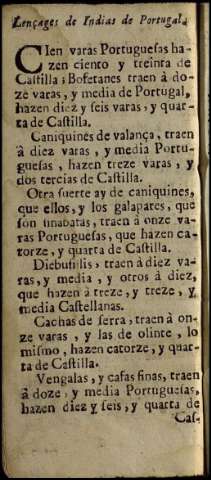 Lençages de Indias de Portugal.
CIen varas Portuguesas ha-
zen ciento y treinta de
Castilla; Bofetanes traen à do-
ze varas, y media de Portugal,
hazen diez y seis varas, y quar-
ta de Castilla.
Caniquines de valança, traen
à diez varas, y media Portu-
guesas, hazen treze varas, y
dos tercias de Castilla.
Otra suerte ay de caniquines,
que ellos, y los galapares, que
son sinabatas, traen à onze va-
ras Portuguesas, que hazen ca-
torze, y quarta de Castilla.
traen à diez va-
ras, y media, y otros à diez,
que hazen à treze, y treze, y
media Castellanas.
Cachas de serra, traen à on-
ze varas, y las de olinte, lo
mismo, hazen catorze, y quar-
ta de Castilla.
Vengalas, y casas finas, traen
à doze, y media Portuguesas,
hazen diez y seis, y quarta de
Cas-